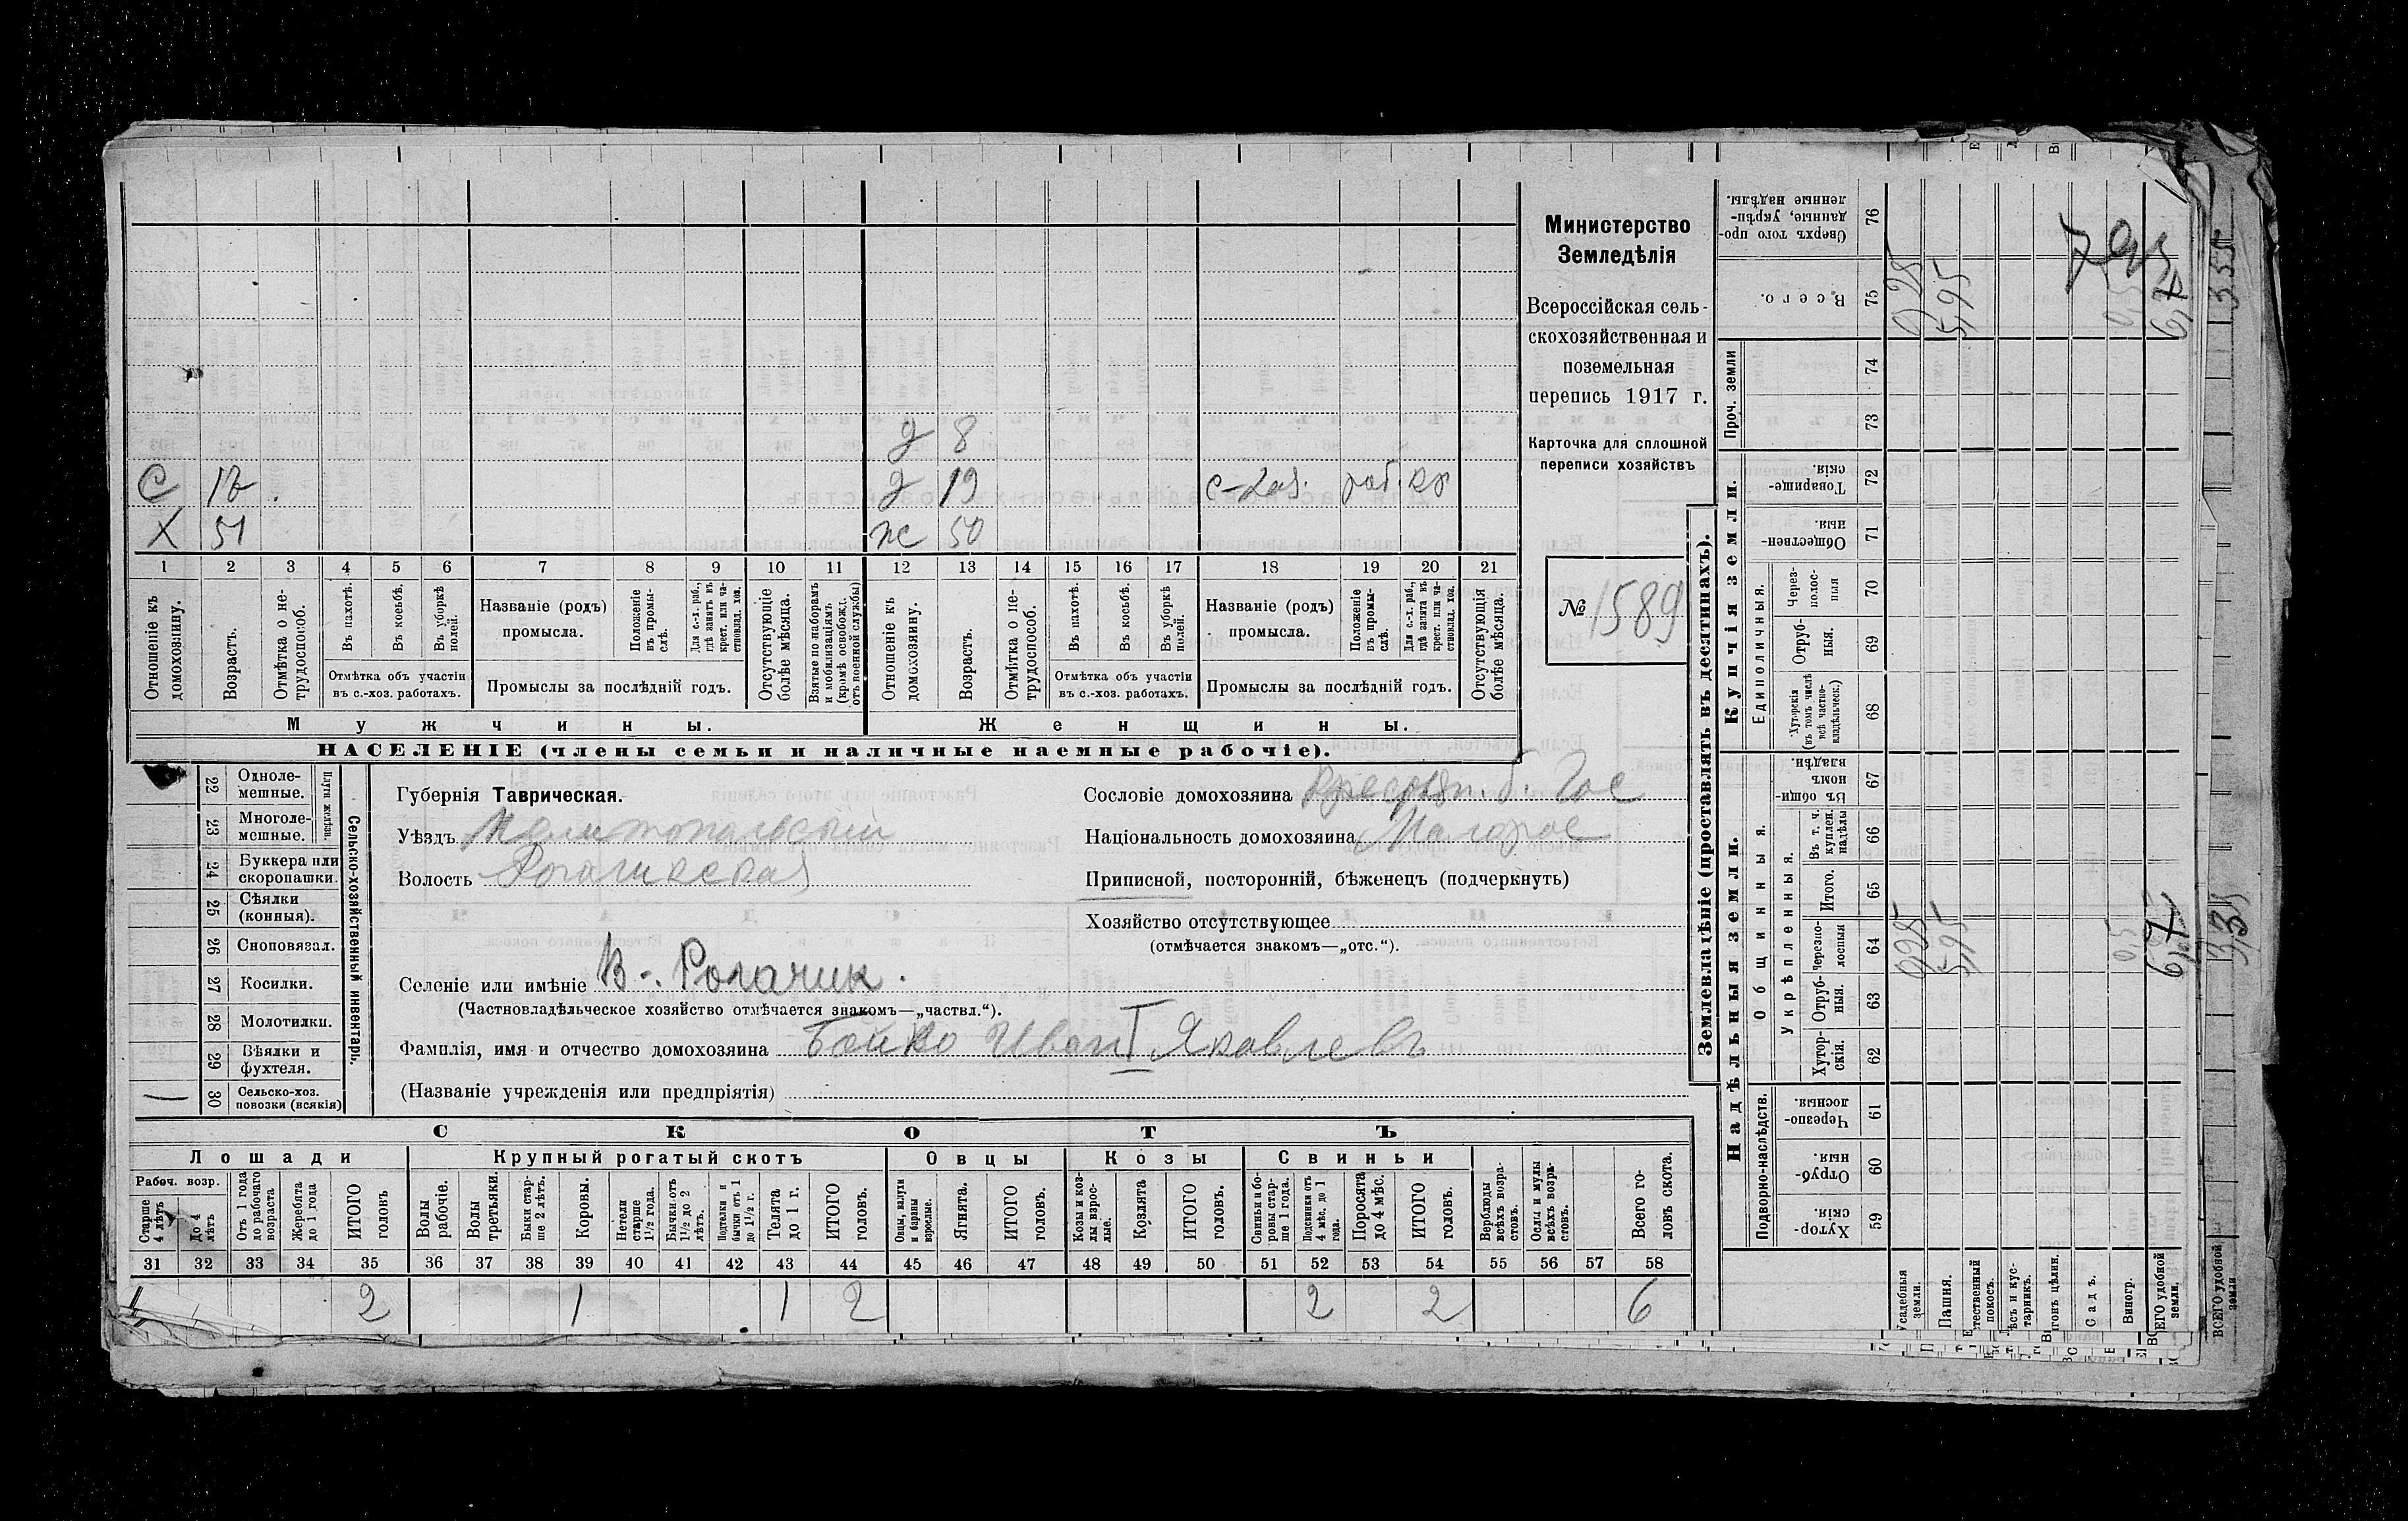 Министерство
Земледѣлія
Всероссійская сель-
скохозяйственная и
поземельная
перепись 1917 г.
Карточка для сплошной
переписи хозяйствъ
№ 1589
д 8
С 12. д 19 с-хоз. раб. кр
Х 51 ж 50
1 2 3 4 5 6 7 8 9 10 11 12 13 14 15 16 17 18 19 20 21
Отношеніе къ домохозяину.
Возрастъ.
Отмѣтка о не-трудоспособ.
Въ пахотѣ.
Въ косьбѣ.
Въ уборкѣ полей.
Отмѣтка объ участіи
въ с.-хоз. работахъ.
Названіе (родъ)
промысла.
Положеніе въ промы-слѣ.
Для с.-х. раб., гдѣ занятъ въ крест. или ча-стновлад. хоз.
Промыслы за послѣдній годъ.
Отсутствующіе болѣе мѣсяца.
Взятые по наборамъ и мобилизаціямъ (кромѣ освобожд. отъ военной службы)
Отношеніе къ домохозяину.
Возрастъ.
Отмѣтка о не-трудоспособ.
Въ пахотѣ.
Въ косьбѣ.
Въ уборкѣ полей.
Отмѣтка объ участіи
въ с.-хоз. работахъ.
Названіе (родъ)
промысла.
Положеніе въ промы-слѣ.
Для с.-х. раб., гдѣ занята въ крест. или ча-стновлад. хоз.
Промыслы за послѣдній годъ.
Отсутствующія болѣе мѣсяца.
Мужчины. Женщины.
НАСЕЛЕНІЕ (члены семьи и наличные наемные рабочіе).
Сельско-хозяйственный инвентарь.
Плуги желѣзн.
22 Одноле-мешные.
23 Многоле-мешные.
24 Буккера или скоропашки.
25 Сѣялки (конныя).
26 Сноповязал.
27 Косилки.
28 Молотилки.
29 Вѣялки и фухтеля.
30 Сельско-хоз. повозки (всякія)
Губернія Таврическая.
Уѣздъ Мелитопальскій
Волость Рогачикская
Селеніе или имѣніе В-. Рогачик.
(Частновладѣльческое хозяйство отмѣчается знакомъ—„частвл.“).
Фамилія, имя и отчество домохозяина Бойко Иван I Яковлевъ
(Названіе учрежденія или предпріятія)
Сословіе домохозяина Крестьян. б. Гос
Національность домохозяина Малорос
Приписной, посторонній, бѣженецъ (подчеркнуть)
Хозяйство отсутствующее
(отмѣчается знакомъ—„отс.“).
СКОТЪ
Лошади Крупный рогатый скотъ Овцы Козы Свиньи
Рабоч. возр.
Старше 4 лѣтъ
До 4 лѣтъ
Отъ 1 года до рабочаго возраста
Жеребята до 1 года
ИТОГО головъ
Волы рабочіе.
Волы третьяки.
Быки стар-ше 2 лѣтъ.
Коровы.
Нетели старше 1½ года.
Бычки отъ 1½ до 2 лѣтъ.
Подтелки и бычки отъ 1 до 1½ г.
Телята до 1 г.
ИТОГО головъ.
Овцы, валухи и бараны взрослые.
Ягнята.
ИТОГО головъ.
Козы и коз-лы взрос-лые.
Козлята
ИТОГО головъ.
Свиньи и бо-ровы стар-ше 1 года.
Подсвинки отъ 4 мѣс. до 1 года.
Поросята до 4 мѣс.
ИТОГО головъ.
Верблюды всѣхъ возра-стовъ.
Ослы и мулы всѣхъ возра-стовъ.
Всего го-ловъ скота.
31 32 33 34 35 36 37 38 39 40 41 42 43 44 45 46 47 48 49 50 51 52 53 54 55 56 57 58
2 1 1 2 2 2 6
Землевладѣніе (проставлять въ десятинахъ).
Купчія земли.
Надѣльныя земли.
Сверхъ того про-данные, укрѣп-ленные надѣлы. 76
Всего. 75
Проч. земли 74 73
Товарище-скія. 72
Обществен-ныя. 71
Единоличныя.
Через-полос-ныя 70
Отруб-ныя. 69
Хуторскія (въ томъ числѣ всѣ частно-владѣльческ.) 68
Въ общин-номъ владѣн. 67
Общинныя.
Укрѣпленныя.
Въ т. ч. куплен. надѣлы 66
Итого. 65
Черезпо-лосныя 64
Отруб-ныя. 63
Хутор-скія. 62
Подворно-наслѣдств.
Черезпо-лосныя. 61
Отруб-ныя. 60
Хутор-скія. 59
Усадебныя земли. 0,98 0,98
Пашня. 5,95 5,95
Естественный покосъ.
Лѣсъ и кус-тарникъ.
Выгонъ цѣлин.
Садъ.
Виногр.
ВСЕГО удобной земли.
ВСЕГО удобной земли